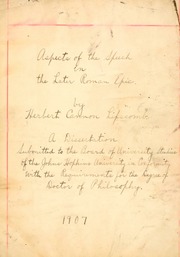 Aspects of the Speech
in
the Later Roman Epic.
by
Herbert Cannon Lipscomb
A Dissertation
Submitted to the Board of University Studies
of the Johns Hopkins University in Conformity
with the Requirements for the Degree of
Doctor of Philosophy.
1907